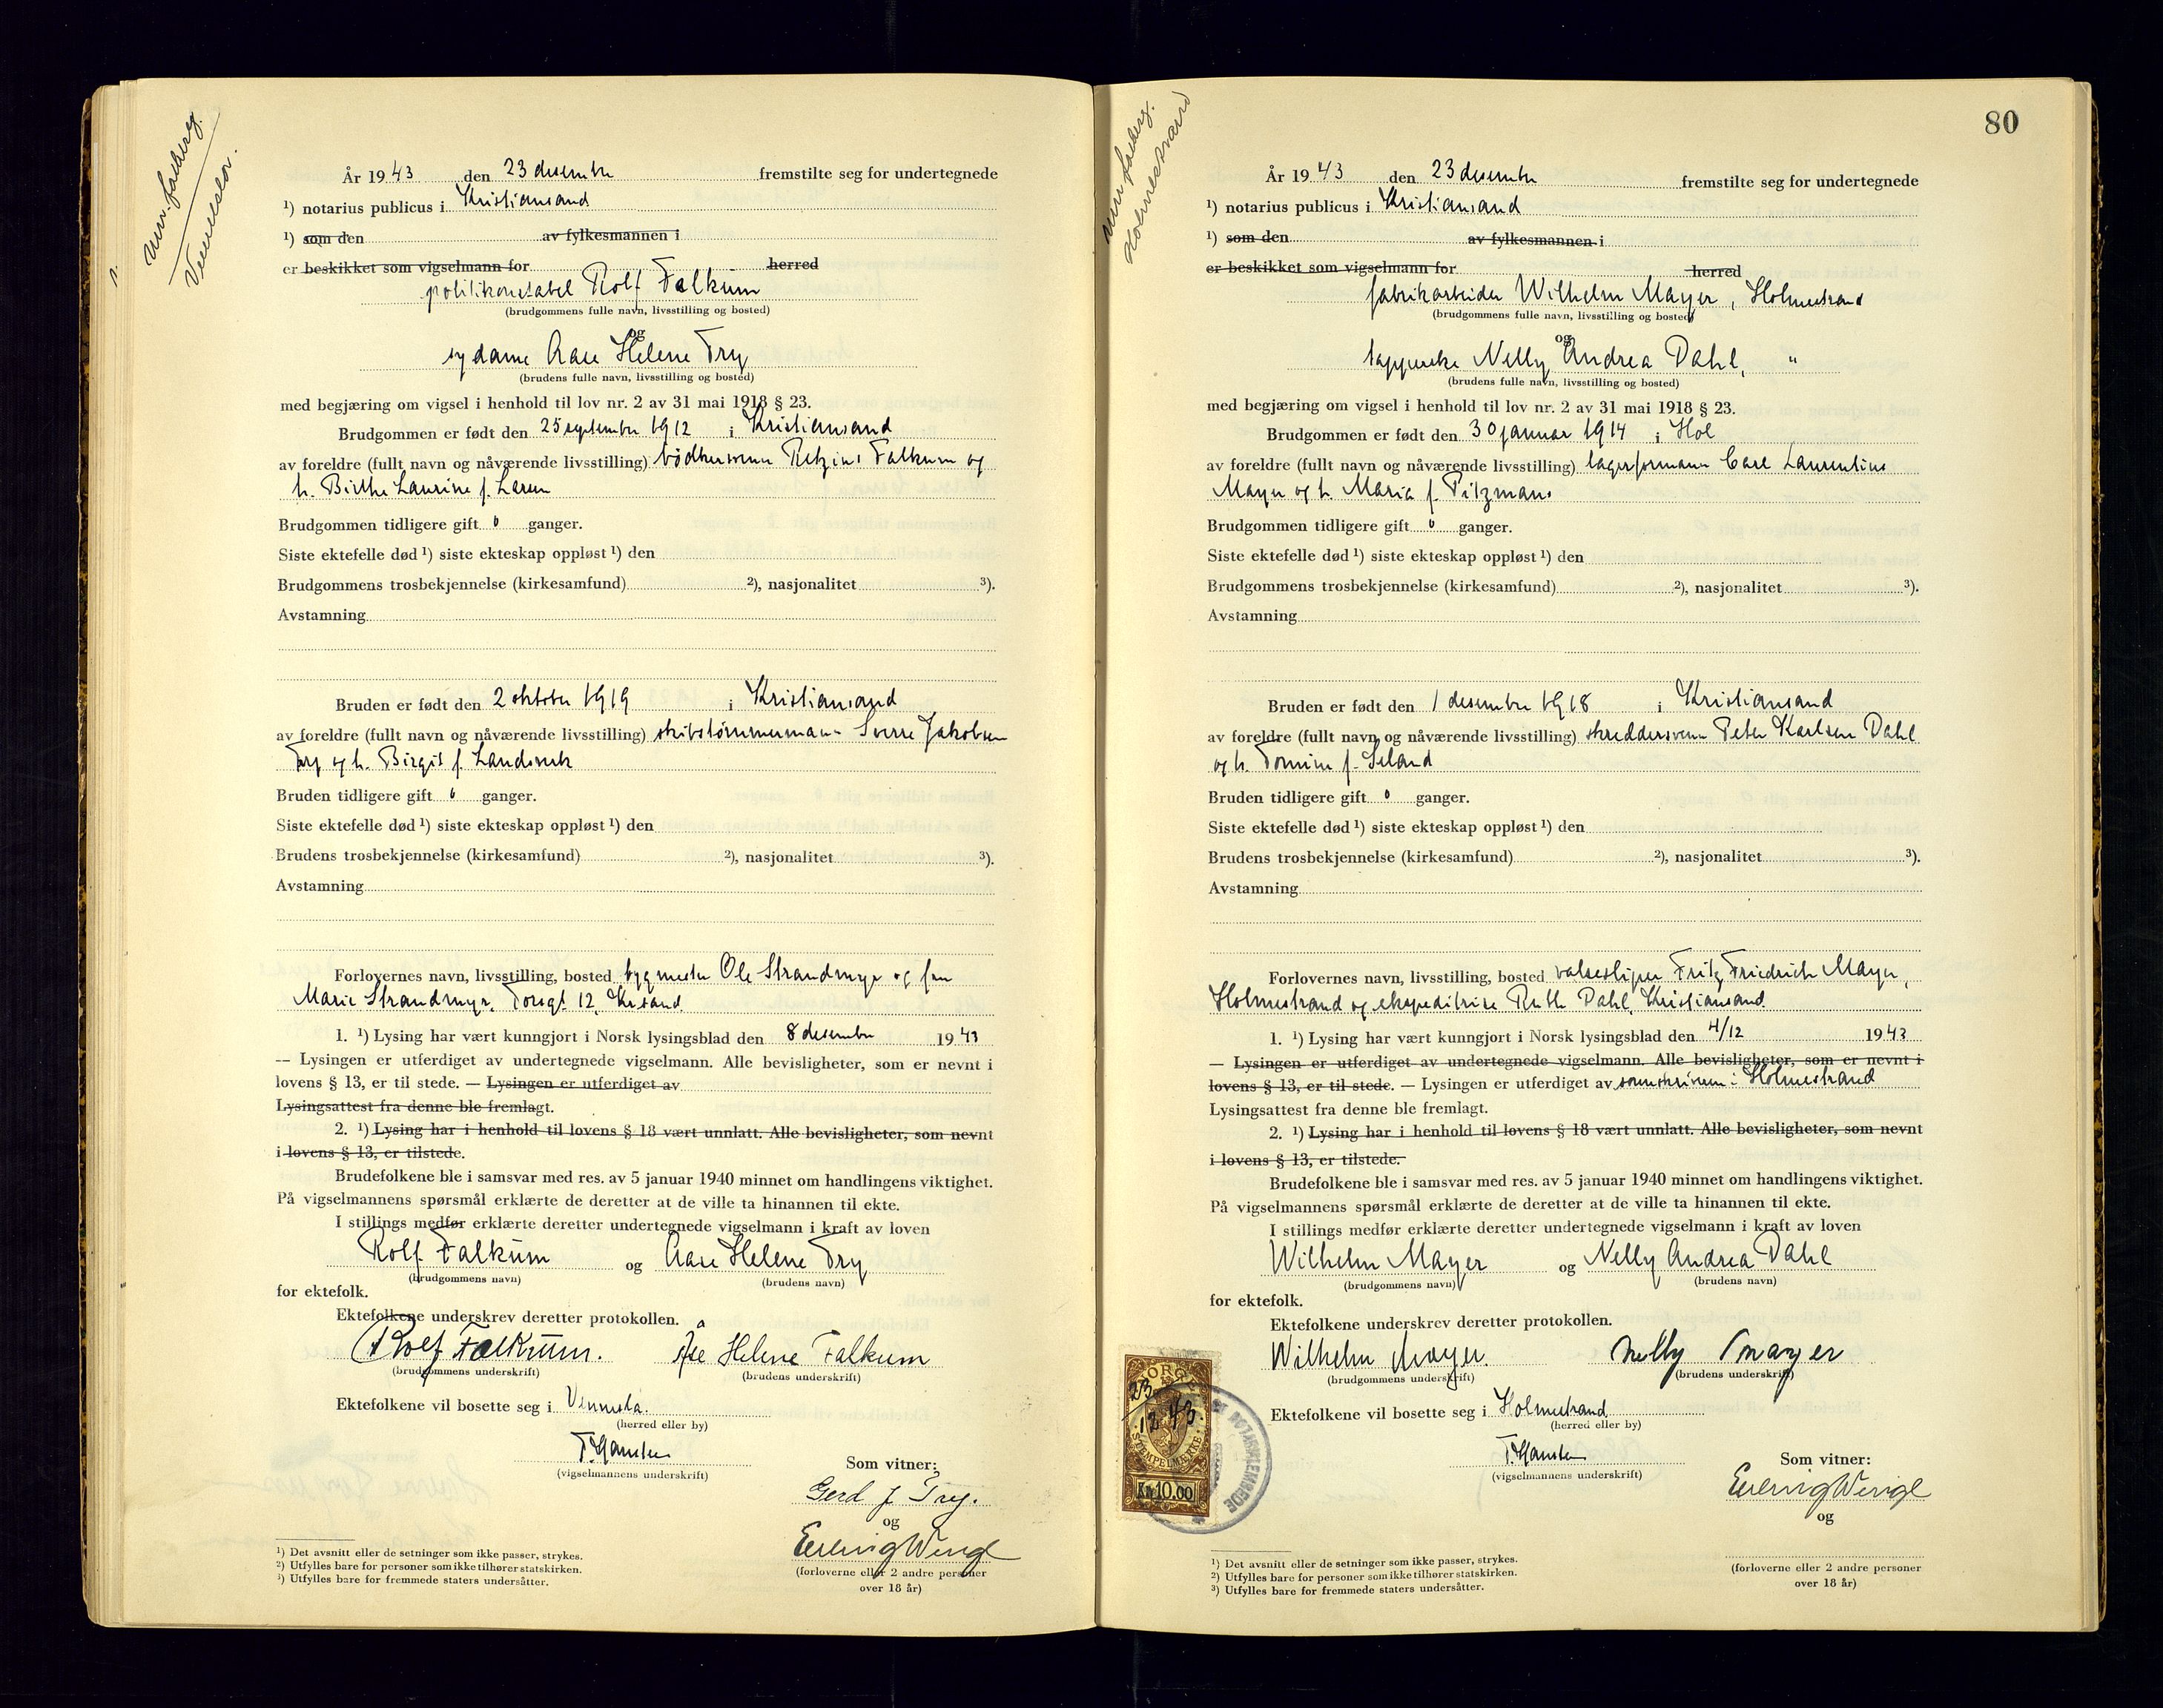 År 1943 den 23 desember fremstilte seg for undertegnede
¹) notarius publicus i Kristiansand
¹) som den av fylkesmannen i
er beskikket som vigselmann for herred
politikonstabel Rolf Falkum
(brudgommens fulle navn, livsstilling og bosted)
og
sydame Aase Helene Try
(brudens fulle navn, livsstilling og bosted)
med begjæring om vigsel i henhold til lov nr. 2 av 31 mai 1918 § 23.
Brudgommen er født den 25 september 1912 i Kristiansand
av foreldre (fullt navn og nåværende livsstilling) bødkersvenn Retzius Falkum og
h. Birthe Laurine f. Larsen
Brudgommen tidligere gift 0 ganger.
Siste ektefelle død ¹) siste ekteskap oppløst ¹) den
Brudgommens trosbekjennelse (kirkesamfund) ²), nasjonalitet ³).
Avstamning
Bruden er født den 2 oktober 1919 i Kristiansand
av foreldre (fullt navn og nåværende livsstilling) skibstømmermann Sverre Jakobsen
Try og h. Birgit f. Landsverk
Bruden tidligere gift 0 ganger.
Siste ektefelle død ¹) siste ekteskap oppløst ¹) den
Brudens trosbekjennelse (kirkesamfund) ²), nasjonalitet ³).
Avstamning
Forlovernes navn, livsstilling, bosted bygmester Ole Strandmyr og fru
Marie Strandmyr, Torvgt. 12, Kr.sand.
1. ¹) Lysing har vært kunngjort i Norsk lysingsblad den 8 desember 1943
— Lysingen er utferdiget av undertegnede vigselmann. Alle bevisligheter, som er nevnt i
lovens § 13, er til stede. — Lysingen er utferdiget av
Lysingsattest fra denne ble fremlagt.
2. ¹) Lysing har i henhold til lovens § 18 vært unnlatt. Alle bevisligheter, som nevnt
i lovens § 13, er tilstede.
Brudefolkene ble i samsvar med res. av 5 januar 1940 minnet om handlingens viktighet.
På vigselmannens spørsmål erklærte de deretter at de ville ta hinannen til ekte.
I stillings medfør erklærte deretter undertegnede vigselmann i kraft av loven
Rolf Falkum og Aase Helene Try
(brudgommens navn) (brudens navn)
for ektefolk.
Ektefolkene underskrev deretter protokollen.
Rolf Falkum. Åse Helene Falkum
(brudgommens underskrift) (brudens underskrift)
Ektefolkene vil bosette seg i Vennesla.
(herred eller by)
T. Hansen
(vigselmannens underskrift)
Som vitner:
Gerd J Try.
og
(forloverne eller 2 andre personer
over 18 år)
¹) Det avsnitt eller de setninger som ikke passer, strykes.
²) Utfylles bare for personer som ikke tilhører statskirken.
³) Utfylles bare for fremmede staters undersåtter.
80
Holmestrand
År 1943 den 23 desember fremstilte seg for undertegnede
¹) notarius publicus i Kristiansand
¹) som den av fylkesmannen i
er beskikket som vigselmann for herred
fabrikarbeider Wilhelm Mayer, Holmestrand
(brudgommens fulle navn, livsstilling og bosted)
og
Nelly Andrea Dahl, "
(brudens fulle navn, livsstilling og bosted)
med begjæring om vigsel i henhold til lov nr. 2 av 31 mai 1918 § 23.
Brudgommen er født den 30 januar 1914 i Hof
av foreldre (fullt navn og nåværende livsstilling) lagerformann Carl Laurentius
Mayer og h. Maria f. Pitzmans
Brudgommen tidligere gift 0 ganger.
Siste ektefelle død ¹) siste ekteskap oppløst ¹) den
Brudgommens trosbekjennelse (kirkesamfund) ²), nasjonalitet ³).
Avstamning
Bruden er født den 1 desember 1918 i Kristiansand
av foreldre (fullt navn og nåværende livsstilling) skreddersvenn Peter Karlsen Dahl
og h. Tomine f. Seland
Bruden tidligere gift 0 ganger.
Siste ektefelle død ¹) siste ekteskap oppløst ¹) den
Brudens trosbekjennelse (kirkesamfund) ²), nasjonalitet ³).
Avstamning
Forlovernes navn, livsstilling, bosted valsesliper Fritz Friedrich Mayer,
Holmestrand og ekspeditrise Ruth Dahl, Kristiansand.
1. ¹) Lysing har vært kunngjort i Norsk lysingsblad den 4/12 1943
— Lysingen er utferdiget av undertegnede vigselmann. Alle bevisligheter, som er nevnt i
lovens § 13, er til stede. — Lysingen er utferdiget av sorenskriveren i Holmestrand
Lysingsattest fra denne ble fremlagt.
2. ¹) Lysing har i henhold til lovens § 18 vært unnlatt. Alle bevisligheter, som nevnt
i lovens § 13, er tilstede.
Brudefolkene ble i samsvar med res. av 5 januar 1940 minnet om handlingens viktighet.
På vigselmannens spørsmål erklærte de deretter at de ville ta hinannen til ekte.
I stillings medfør erklærte deretter undertegnede vigselmann i kraft av loven
Wilhelm Mayer og Nelly Andrea Dahl
(brudgommens navn) (brudens navn)
for ektefolk.
Ektefolkene underskrev deretter protokollen.
Wilhelm Mayer. Nelly Mayer
(brudgommens underskrift) (brudens underskrift)
Ektefolkene vil bosette seg i Holmestrand
(herred eller by)
T. Hansen
(vigselmannens underskrift)
Som vitner:
og
(forloverne eller 2 andre personer
over 18 år)
¹) Det avsnitt eller de setninger som ikke passer, strykes.
²) Utfylles bare for personer som ikke tilhører statskirken.
³) Utfylles bare for fremmede staters undersåtter.
NORGE
23
12 43.
STEMPELMERKE
Kr 10.00